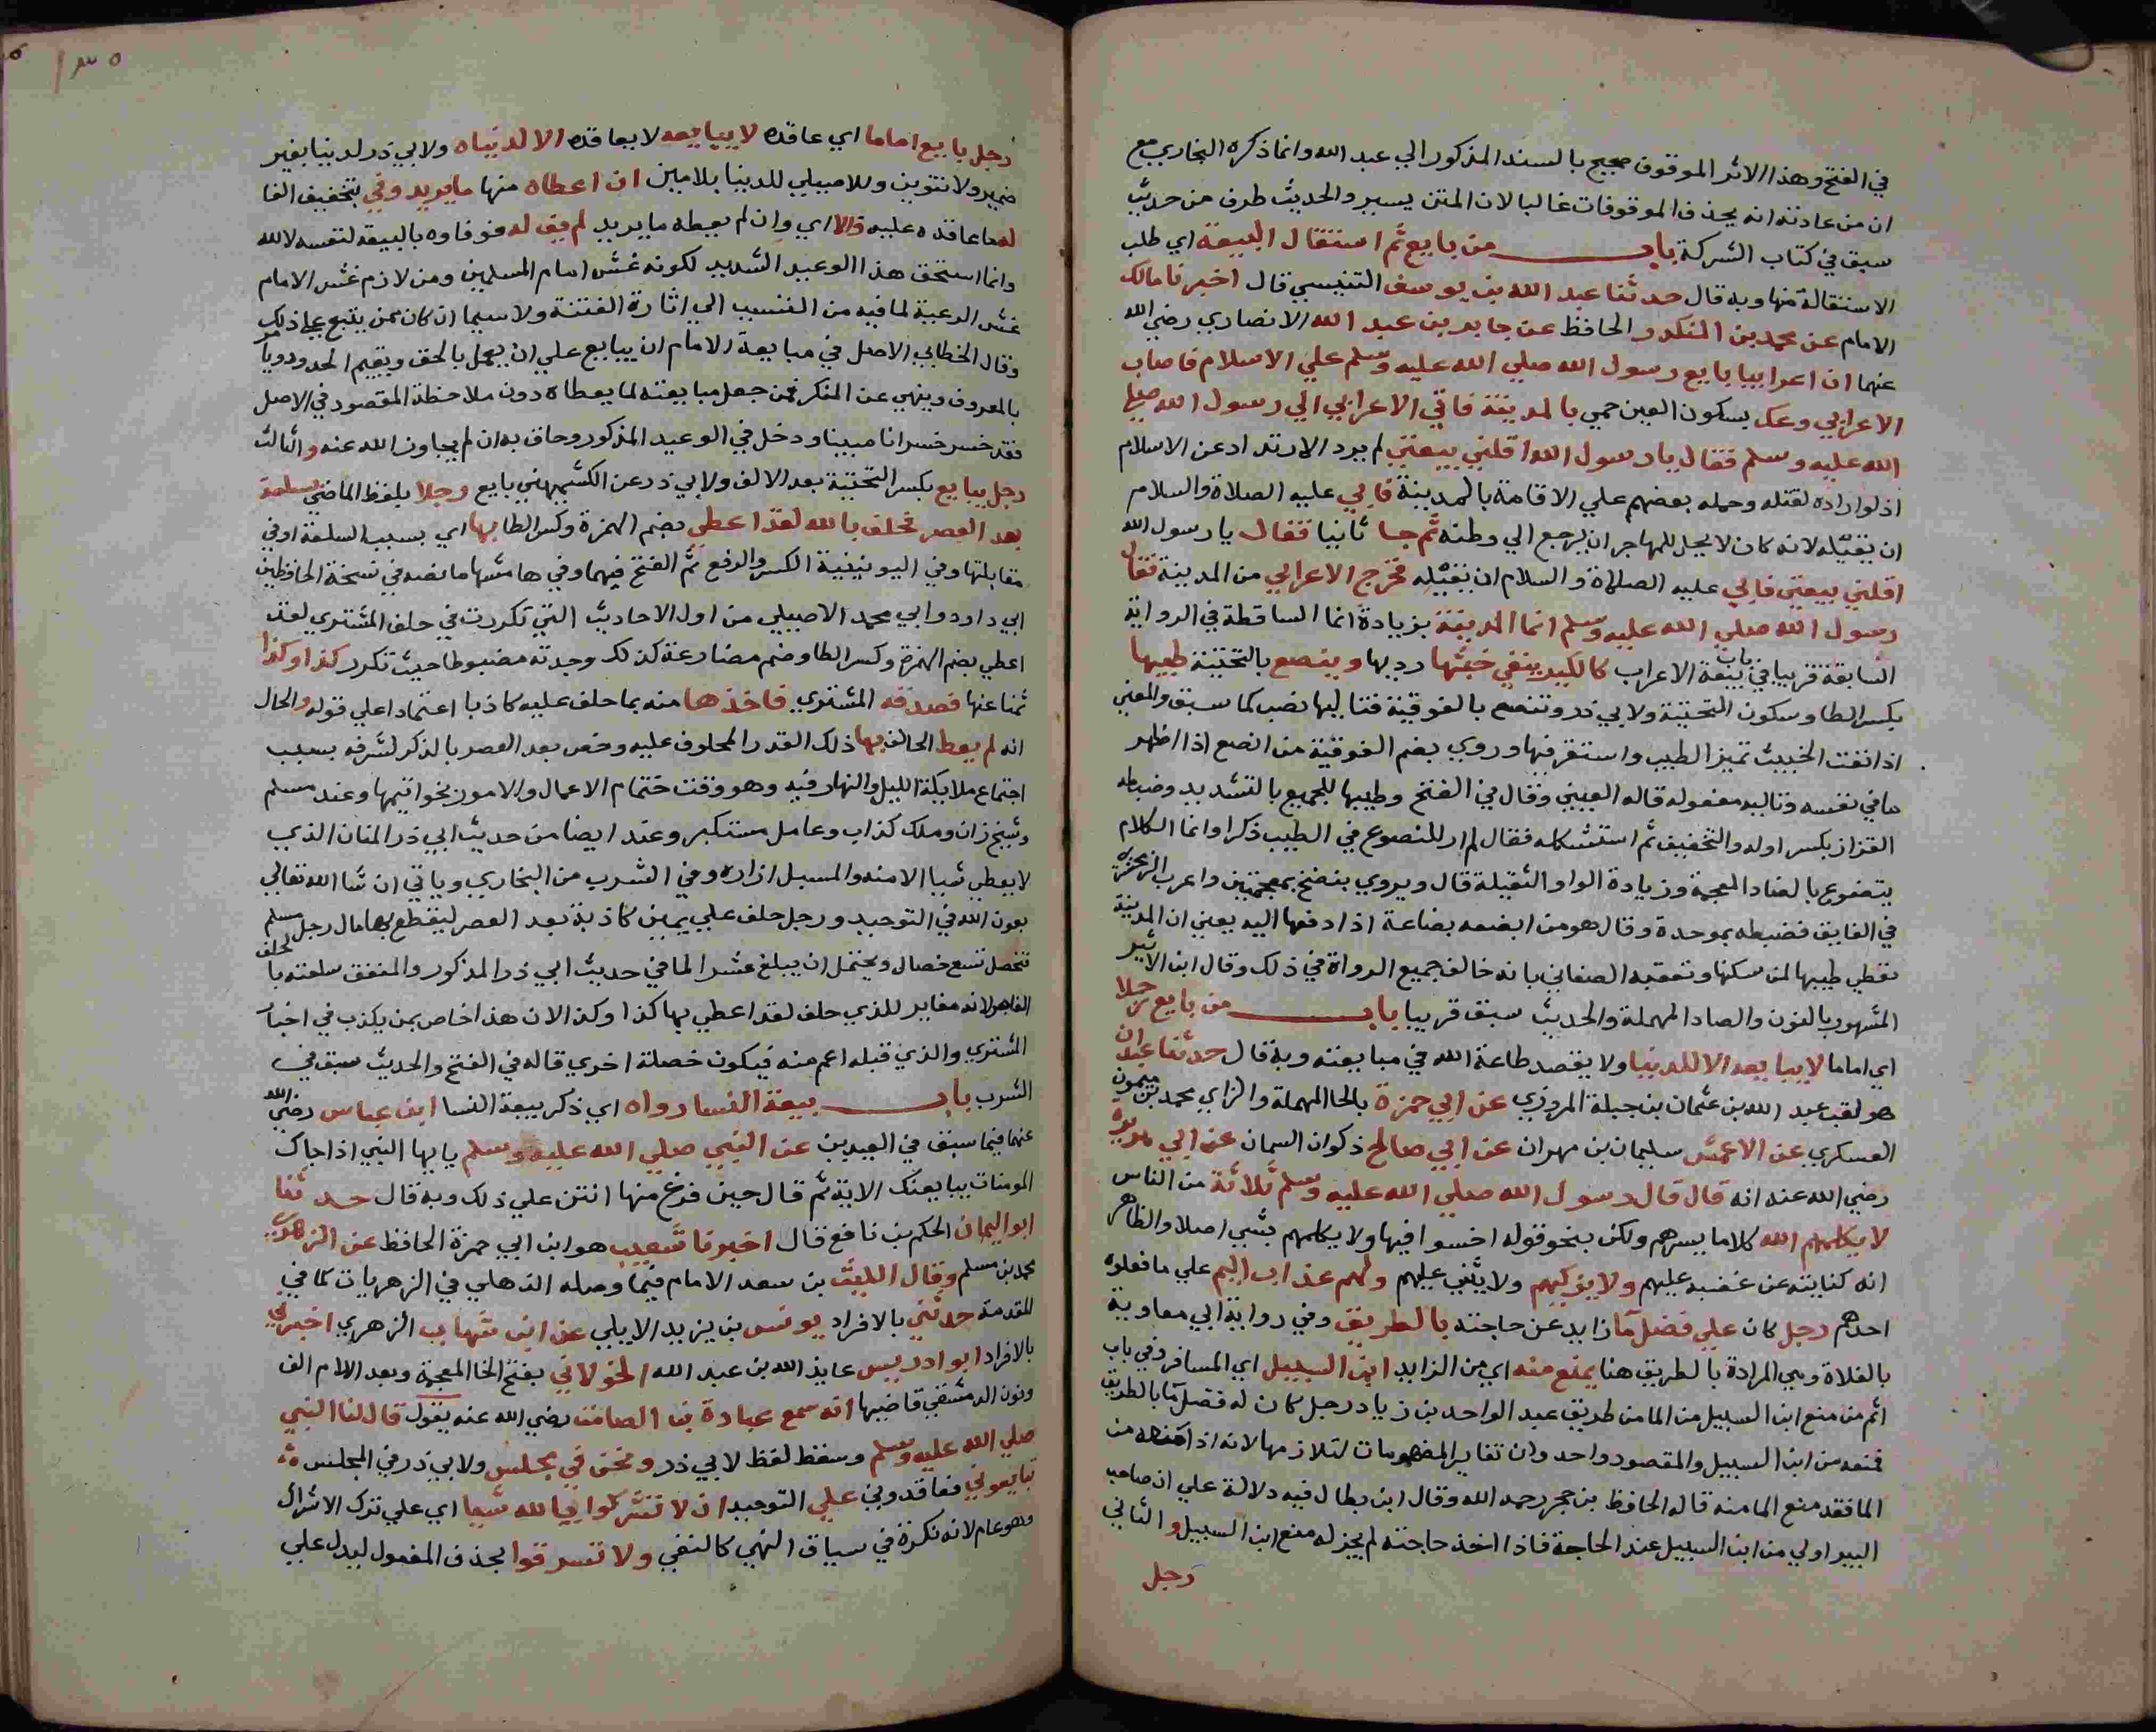 في الفتح وهذا الاثر الموقوف صحيح بالسند المذكور الي عبد الله وانما ذكره البخاري مع
ان من عادته انه يحذف الموقوفات غالبا لان المتن يسير والحديث طرف من حديث
سبق في كتاب الشركة باب من بايع ثم استقال البيعة اي طلب
الاستقالة منها وبه قال حدثنا عبد الله بن يوسف التنيسي قال اخبرنا مالك
الامام عن محمد بن المنكدر الحافظ عن جابر بن عبد الله الانصاري رضي الله
عنهما ان اعرابيا بايع رسول الله صلي الله عليه وسلم علي الاسلام فاصاب
الاعرابي وعك بسكون العين حمي بالمدينة فاتي الاعرابي الي رسول الله صلي
الله عليه وسلم فقال يا رسول الله اقلني بيعتي لم يرد الارتداد عن الاسلام
اذ لو اراده لقتله وحمله بعضهم علي الاقامة بالمدينة فابي عليه الصلاة والسلام
ان يقيله لانه كان لا يحل للمهاجر ان يرجع الي وطنه ثم جا ثانيا فقال يا رسول الله
اقلني بيعتي فابي عليه الصلاة والسلام ان يقيله فخرج الاعرابي من المدينة فقال
رسول الله صلي الله عليه وسلم انما المدينة بزيادة انما الساقطة في الرواية
السابقة قريبا في باب بيعة الاعراب كالكير ينفي خبثها رديها وينصع بالتحتية طيبها
بكسر الطا وسكون التحتية ولابي ذر وتنصع بالفوقية فتاليها نصب كما سبق والمعني
اذا نفت الخبيث تميز الطيب واستقر فيها وروي بضم الفوقية من انصع اذا اظهر
ما في نفسه وتاليه مفعوله قاله العيني وقال في الفتح وطيبها للجميع بالتشديد وضبطه
القزاز بكسر اوله والتخفيف ثم استشكله فقال لم ار للنصوع في الطيب ذكرا وانما الكلام
يتضوع بالضاد المعجمة وزيادة الواو الثقيلة قال ويروي ينضخ بمعجمتين واغرب الزمخشري
في الفايق فضبطه بموحدة وقال هو من ابضعه بضاعة اذا دفعها اليه يعني ان المدينة
تعطي طيبها لمن سكنها وتعقبه الصغاني بانه خالف جميع الرواة في ذلك وقال ابن الاثير
المشهور بالنون والصاد المهملة والحديث سبق قريبا باب من بايع رجلا
اي اماما لا يبايعه الا للدنيا ولا يقصد طاعة الله في مبايعته وبه قال حدثنا عبدان
هو لقب عبد الله بن عثمان بن جبلة المروزي عن ابي حمزة بالحا المهملة والزاي محمد بن ميمون
العسكري عن الاعمش سليمان بن مهران عن ابي صالح ذكوان السمان عن ابي هريرة
رضي الله عنه انه قال قال رسول الله صلي الله عليه وسلم ثلاثة من الناس
لا يكلمهم الله كلاما يسرهم ولكن بنحو قوله اخسوا فيها ولا يكلمهم بشي اصلا والظاهر
انه كناية عن غضبه عليهم ولا يزكيهم ولا يثني عليهم ولهم عذاب اليم علي ما فعلوه
احدهم رجل كان علي فضل ما زايد عن حاجته بالطريق وفي رواية ابي معاوية
بالفلاة وهي المرادة بالطريق هنا يمنع منه اي من الزايد ابن السبيل اي المسافر وفي باب
اثم من منع ابن السبيل من الما من طريق عبد الواحد بن زياد رجل كان له فضل ما بالطريق
فمنعه من ابن السبيل والمقصود واحد وان تغاير المفهومات لتلازمها لانه اذا منعه من
الما فقد منع الما منه قاله الحافظ بن حجر رحمه الله وقال ابن بطال فيه دلالة علي ان صاحب
البير اولي من ابن السبيل عند الحاجة فاذا اخذ حاجته لم يجز له منع ابن السبيل والثاني
رجل
١٣٥
رجل بايع اماما اي عاقده لا يبايعه لا يعاقده الا لدنياه ولابي ذر لدنيا بغير
ضمير ولا تنوين وللاصيلي للدنيا بلامين ان اعطاه منها ما يريد وفي بتخفيف الفا
له ما عاقده عليه والا اي وان لم يعطه ما يريد لم يف له فوفاوه بالبيعة لنفسه لا لله
وانما استحق هذا الوعيد الشديد لكونه غش امام المسلمين ومن لازم غش الامام
غش الرعية لما فيه من التسبب الي اثارة الفتنة ولا سيما ان كان ممن يتبع علي ذلك
وقال الخطابي الاصل في مبايعة الامام ان يبايع علي ان يعمل بالحق ويقيم الحدود ويامر
بالمعروف وينهي عن المنكر فمن جعل مبايعته لما يعطاه دون ملاحظة المقصود في الاصل
فقد خسر خسرانا مبينا ودخل في الوعيد المذكور وحاق به ان لم يتجاوز الله عنه والثالث
رجل يبايع بكسر التحتية بعد الالف ولابي ذر عن الكشميهني بايع رجلا بلفظ الماضي بسلعة
بعد العصر فحلف بالله لقد اعطي بضم الهمزة وكسر الطا بها اي بسبب السلعة او في
مقابلتها وفي اليونينية الكسر والرفع ثم الفتح فيهما وفي هامشها ما نصه في نسخة الحافظين
ابي داود وابي محمد الاصيلي من اول الاحاديث التي تكررت في حلف المشتري لقد
اعطي بضم الهمزة وكسر الطا وضم مضارعه كذلك وجدته مضبوطا حيث تكرر كذا وكذا
ثمنا عنها فصدقه المشتري فاخذها منه بما حلف عليه كاذبا اعتمادا علي قوله والحال
انه لم يعط الحالف بها ذلك القدر المحلوف عليه وخص بعد العصر بالذكر لشرفه بسبب
اجتماع ملايكة الليل والنهار فيه وهو وقت ختام الاعمال والامور بخواتيمها وعند مسلم
وشيخ زان وملك كذاب وعامل مستكبر وعند ايضا من حديث ابي ذر المنان الذي
لا يعطي شيا الا منه والمسبل ازاره وفي الشرب من البخاري وياتي ان شا الله تعالي
بعون الله في التوحيد ورجل حلف علي يمين كاذبة بعد العصر ليقطع بها مال رجل مسلم
فتحصل تسع خصال ويحتمل ان يبلغ عشرا لما في حديث ابي ذر المذكور والمنفق سلعته بالحلف
الفاجر لانه مغاير للذي حلف لقد اعطي بها كذا وكذا لان هذا خاص بمن يكذب في اخبار
المشتري والذي قبله اعم منه فيكون خصلة اخري قاله في الفتح والحديث سبق في
الشرب باب بيعة النسا رواه اي ذكر بيعة النسا ابن عباس رضي الله
عنهما فيما سبق في العيدين عن النبي صلي الله عليه وسلم يا يها النبي اذا جاك
المومنات يبايعنك الاية ثم قال حين فرغ منها انتن علي ذلك وبه قال حدثنا
ابو اليمان الحكم بن نافع قال اخبرنا شعيب هو ابن ابي حمزة الحافظ عن الزهري
محمد بن مسلم وقال الليث بن سعد الامام فيما وصله الذهلي في الزهريات كما في
المقدمة حدثني بالافراد يونس بن يزيد الايلي عن ابن شهاب الزهري اخبرني
بالافراد ابو ادريس عايذ الله بن عبد الله الخولاني بفتح الخا المعجمة وبعد اللام الف
ونون الدمشقي قاضيها انه سمع عبادة بن الصامت رضي الله عنه يقول قال لنا النبي
صلي الله عليه وسلم وسقط لفظ لابي ذر ونحن في مجلس ولابي ذر في المجلس
تبايعوني فعاقدوني علي التوحيد ان لا تشركوا بالله شيا اي علي ترك الاشراك
وهو عام لانه نكرة في سياق النهي كالنفي ولا تسرقوا بحذف المفعول ليدل علي